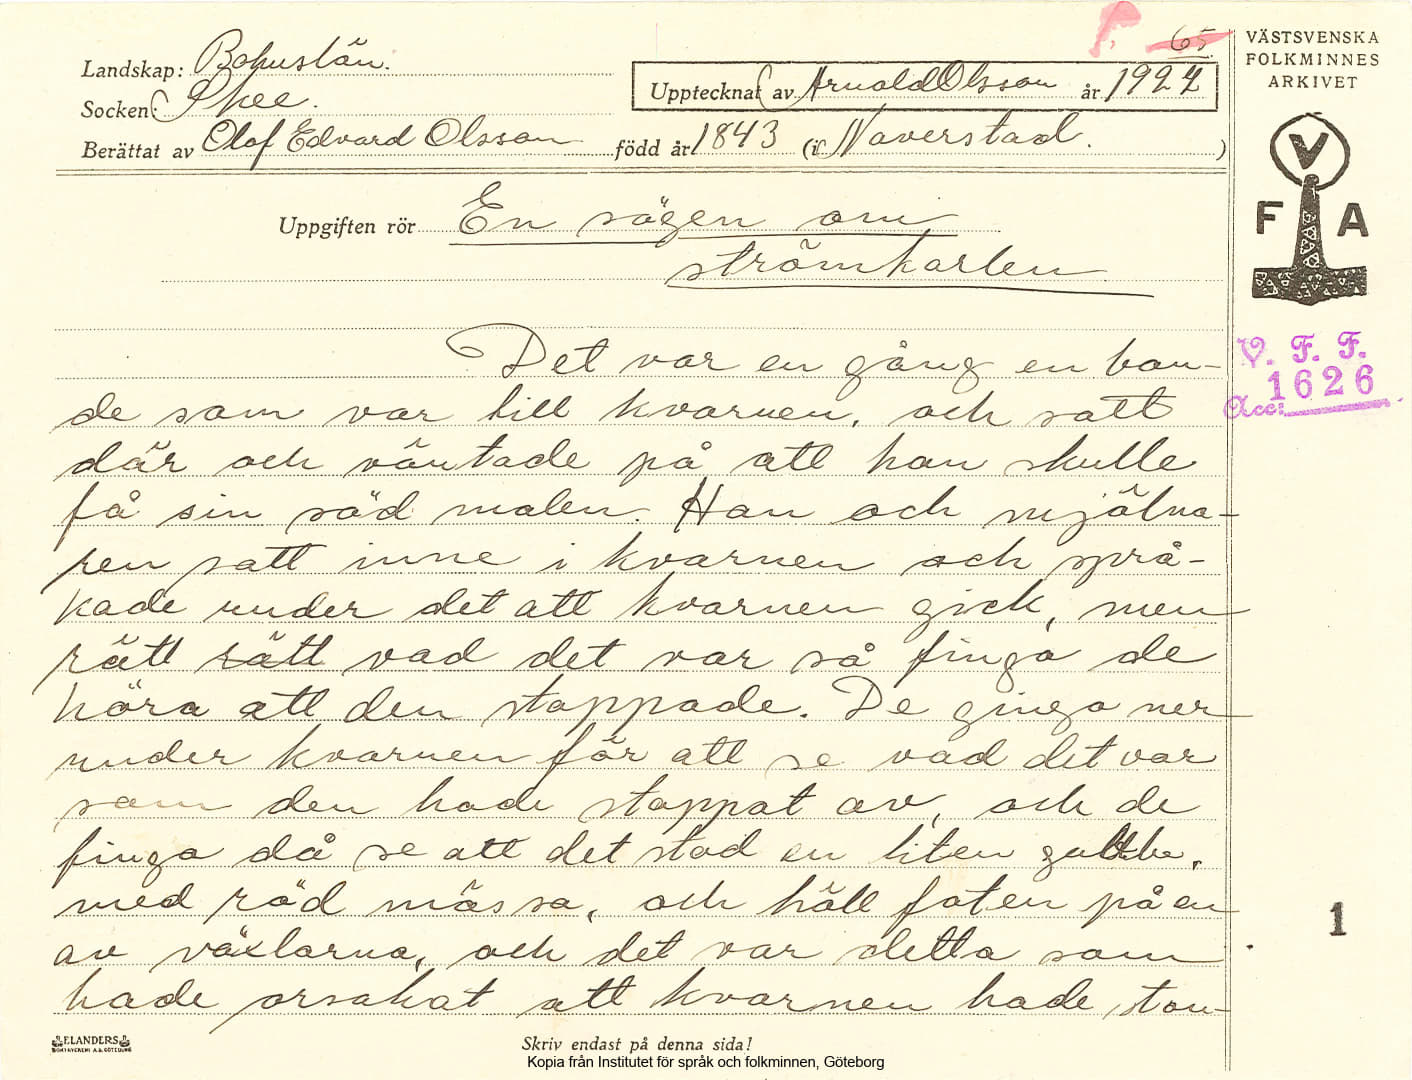 65
VÄSTSVENSKA
FOLKMINNES
ARKIVET
Landskap: Bohuslän.
Socken: Skee.
Upptecknat av Arnold Olsson år 1927
Berättat av Olof Edvard Olsson född år 1843 (i Naverstad. )
V
F A
Uppgiften rör En sägen om
strömkarlen
V. F. F.
Acc: 1626
Det var en gång en bon-
de som var till kvarnen, och satt
där och väntade på att han skulle
få sin säd malen. Han och mjölna-
ren satt inne i kvarnen och språ-
kade under det att kvarnen gick, men
rätt rätt vad det var så finga de
höra att den stoppade. De ginga ner
under kvarnen för att se vad det var
som den hade stoppat av, och de
finga då se att det stod en liten gubbe,
med röd mössa, och höll foten på en
av växlarna, och det var detta som
hade orsakat att kvarnen hade stan-
1
ELANDERS
BOKTRYCKERI A.B. GÖTEBORG
Skriv endast på denna sida!
Kopia från Institutet för språk och folkminnen, Göteborg